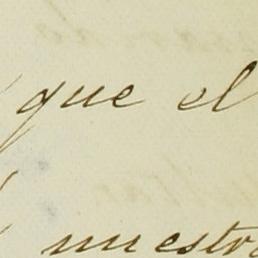 que el
nuestro